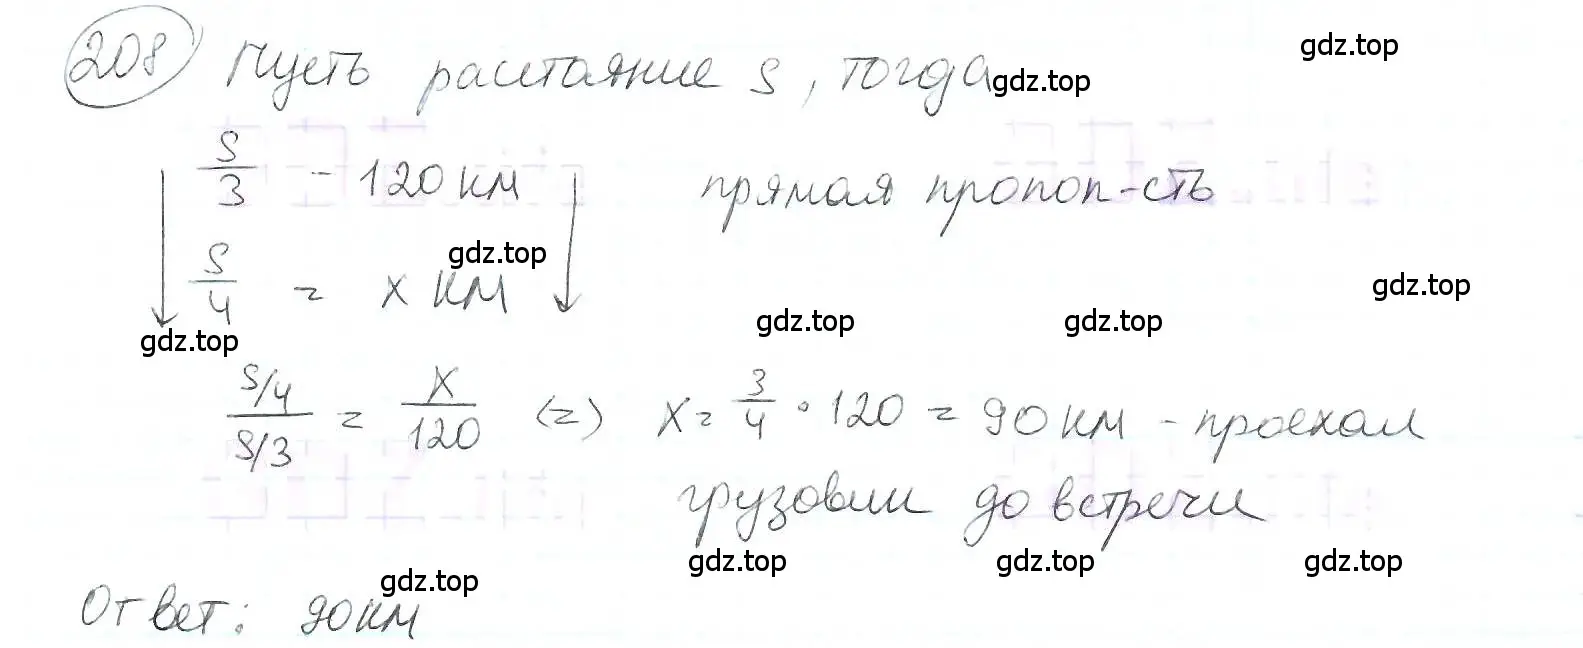 208 Пусть расстояние S, тогда
gdz.top
gdz.top
S/3 - 120 км прямая пропоп-сть
gdz.top
S/4 = x км
gdz.top
gdz.top
gdz.top
gdz.top
S/4 / S/3 = x/120 (=) x = 3/4 · 120 = 90 км - проехал
грузовик до встречи
gdz.top
gdz.top
gdz.top
gdz.top
Ответ: 90 км